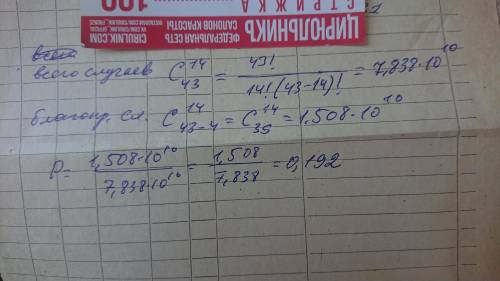 СТРИЖКА 100
ЦИРЮЛЬНИКЪ
ФЕДЕРАЛЬНАЯ СЕТЬ
САЛОНОВ КРАСОТЫ
CIRULNIK.COM
1
всего случаев C₄₃¹⁴ = 43! / 14!(43-14)! = 7,838·10¹⁰
благопр. сл. C₄₃₋₄¹⁴ = C₃₉¹⁴ = 1,508·10¹⁰
P = 1,508·10¹⁰ / 7,838·10¹⁰ = 1,508 / 7,838 = 0,192